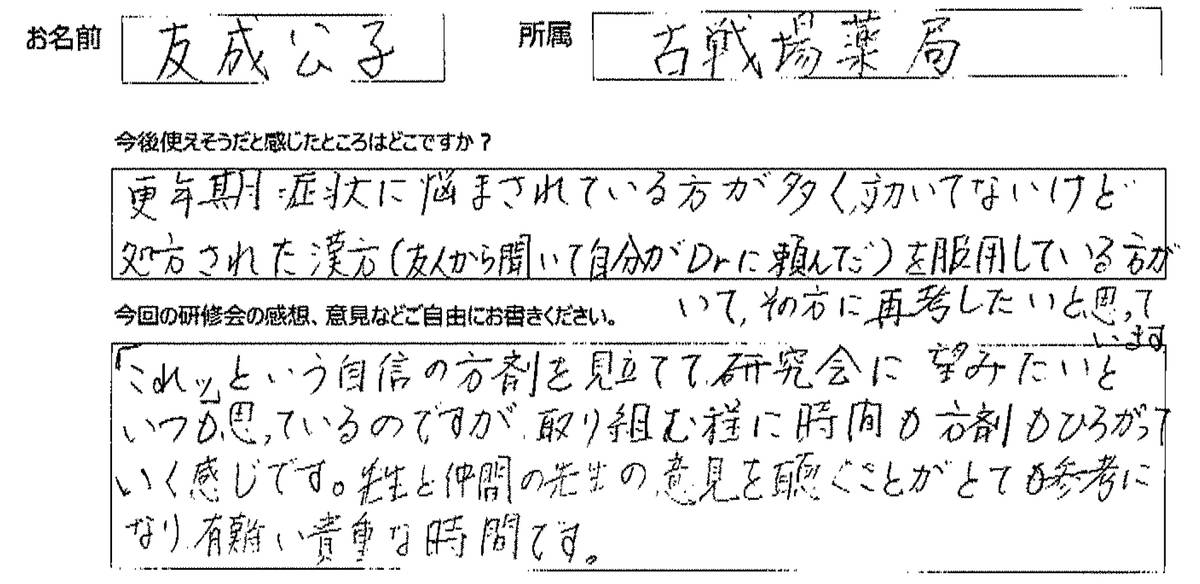 お名前 友成公子 所属 古戦場薬局
今後使えそうだと感じたところはどこですか？
更年期症状に悩まされている方が多く、効いてないけど
処方された漢方(友人から聞いて自分がDrに頼んだ)を服用している方が
いて、その方に再考したいと思って
います
今回の研修会の感想、意見などご自由にお書きください。
「これッ」という自信の方剤を見立てて、研究会に望みたいと
いつも思っているのですが、取り組む程に時間も方剤もひろがって
いく感じです。先生と仲間の先生の意見を聴くことがとても参考に
なり、有難い貴重な時間です。